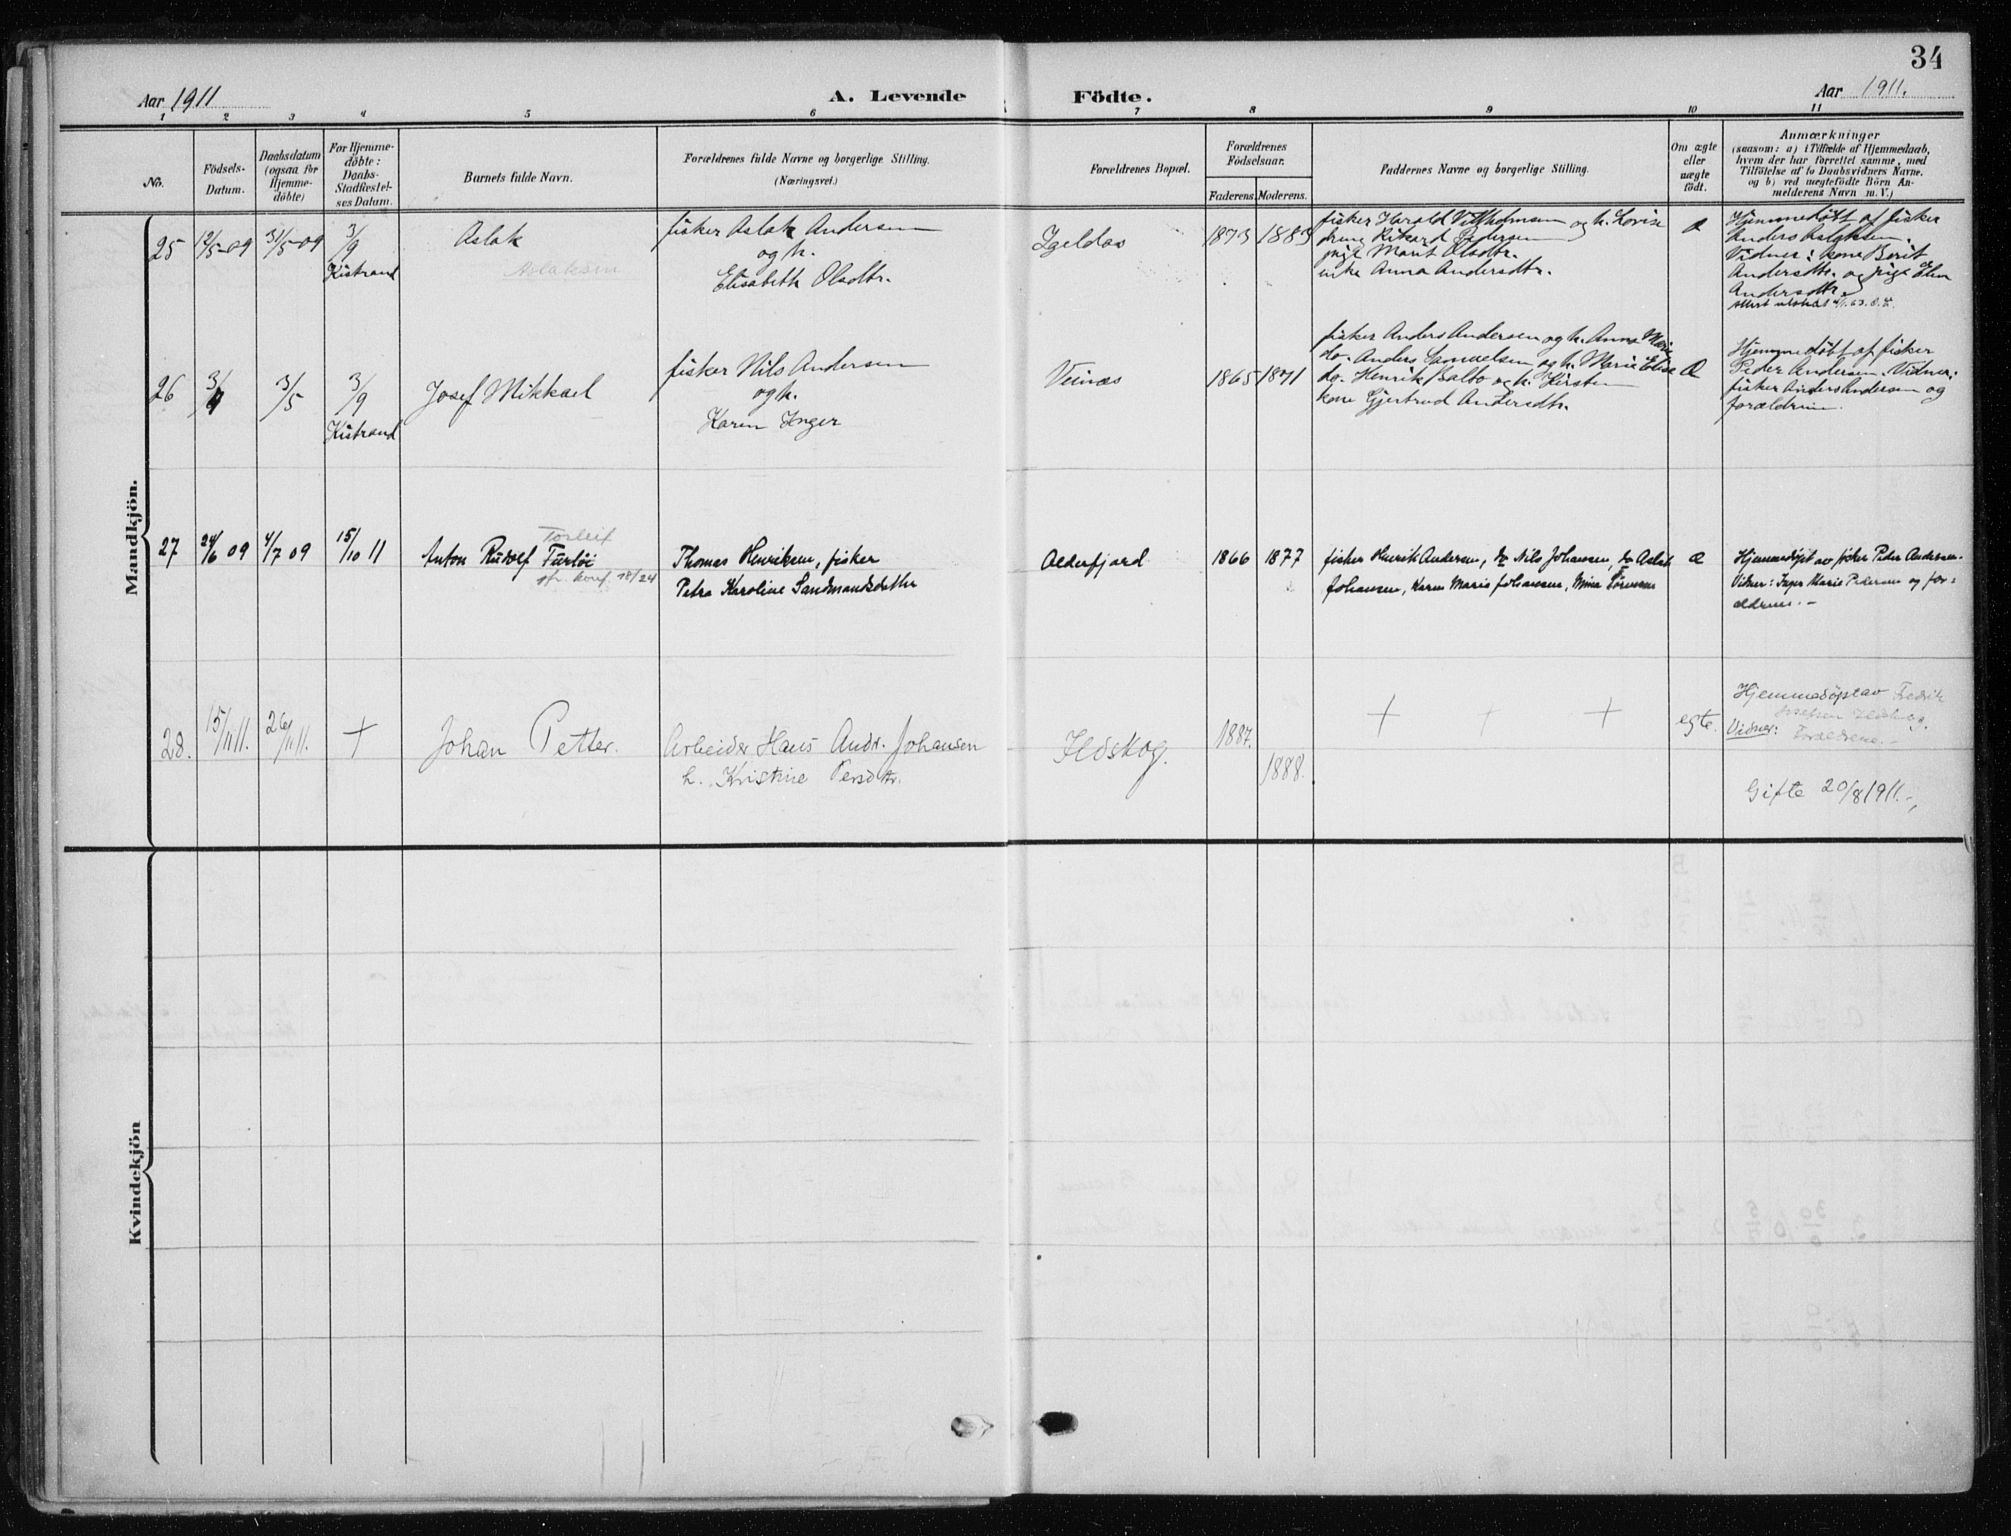 34
Aar 1911
A. Levende Födte.
Aar 1911.
1 2 3 4 5 6 7 8 9 10 11
No.
Födsels-
Datum.
Daabsdatum
(ogsaa for
Hjemme-
döbte)
For Hjemme-
döbte:
Daabs-
Stadfæstel-
ses Datum.
Barnets fulde Navn.
Forældrenes fulde Navne og borgerlige Stilling.
(Næringsvei.)
Forældrenes Bopæl.
Forældrenes
Födselsaar.
Faderens. Moderens.
Faddernes Navne og borgerlige Stilling.
Om ægte
eller
uægte
födt.
Anmærkninger
(saasom: a) i Tilfælde af Hjemmedaab,
hvem der har forrettet samme, med
Tilföielse af to Daabsvidners Navne,
og b) ved uægtefödte Börn An-
melderens Navn m. V.)
Mandkjön.
25
12/5-09
31/5-09
3/9
Kistrand
Aslak
Aslaksen
fisker Aslak Andersen
og h.
Elisabeth Olsdtr.
Igeldas
1873 1883
fisker Harald Vilhelmsen og h. Lovise
dreng Rikard Pedersen
pige Marit Olsdtr.
enke Anna Andersdtr.
æ
Hjemmedøbt af fisker
Anders Aslaksen.
Vidner: kone Berit
Andersdtr. og pige Elen
Andersdtr.
26
3/4
3/5
3/9
Kistrand
Josef Mikkael
fisker Nils Andersen
og h.
Karen Inger
Veines
1865 1871
fisker Anders Andersen og h. Anna Marie
do. Anders Samuelsen og h. Marie Elise
do. Henrik Balto og h. Kirsten
kone Gjertrud Andersdtr.
Æ
Hjemmedøbt af fisker
Peder Andersen. Vidner:
fisker Anders Andersen og
forældrene.
27
24/6 09
4/7 09
15/10 11
Torleif
Anton Rudolf Furtöi
konf. 18/24
Thomas Henriksen, fisker
Petra Karoline Sandmandsdatter
Olderfjord
1866 1877
fisker Henrik Andersen, do Nils Johansen, do Aslak
Johansen, Karen Marie Johansen, Mina Sörensen
æ
Hjemmedøpt av fisker Peder Andersen.
Vidner: Inger Marie Pedersen og for-
ældrene. -
28.
15/11 11.
26/11 11.
+
Johan Petter.
Arbeider Hans Andr. Johansen
h. Kristine Persdtr.
Ildskog.
1887.
1888.
+ + +
egte.
Hjemmedøpt av Fredrik
Josefsen Ildskog.
Vidner: Forældrene. -
Gifte 20/8 1911. -
Kvindekjön